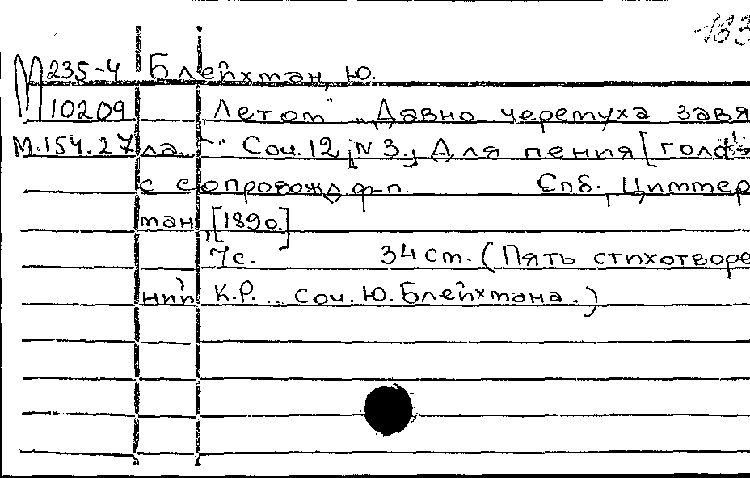 183
М 235-4 Блейхтан, Ю.
10209 Летом „Давно черемуха завя
М.154.27 ла..." Соч. 12, N 3., Для пения [голоса
с сопровожд ф-п. Спб., Циммер
ман, [1890.]
7с. 34 ст. (Пять стихотворе
ний К.Р. .. Соч. Ю. Блейхмана.)